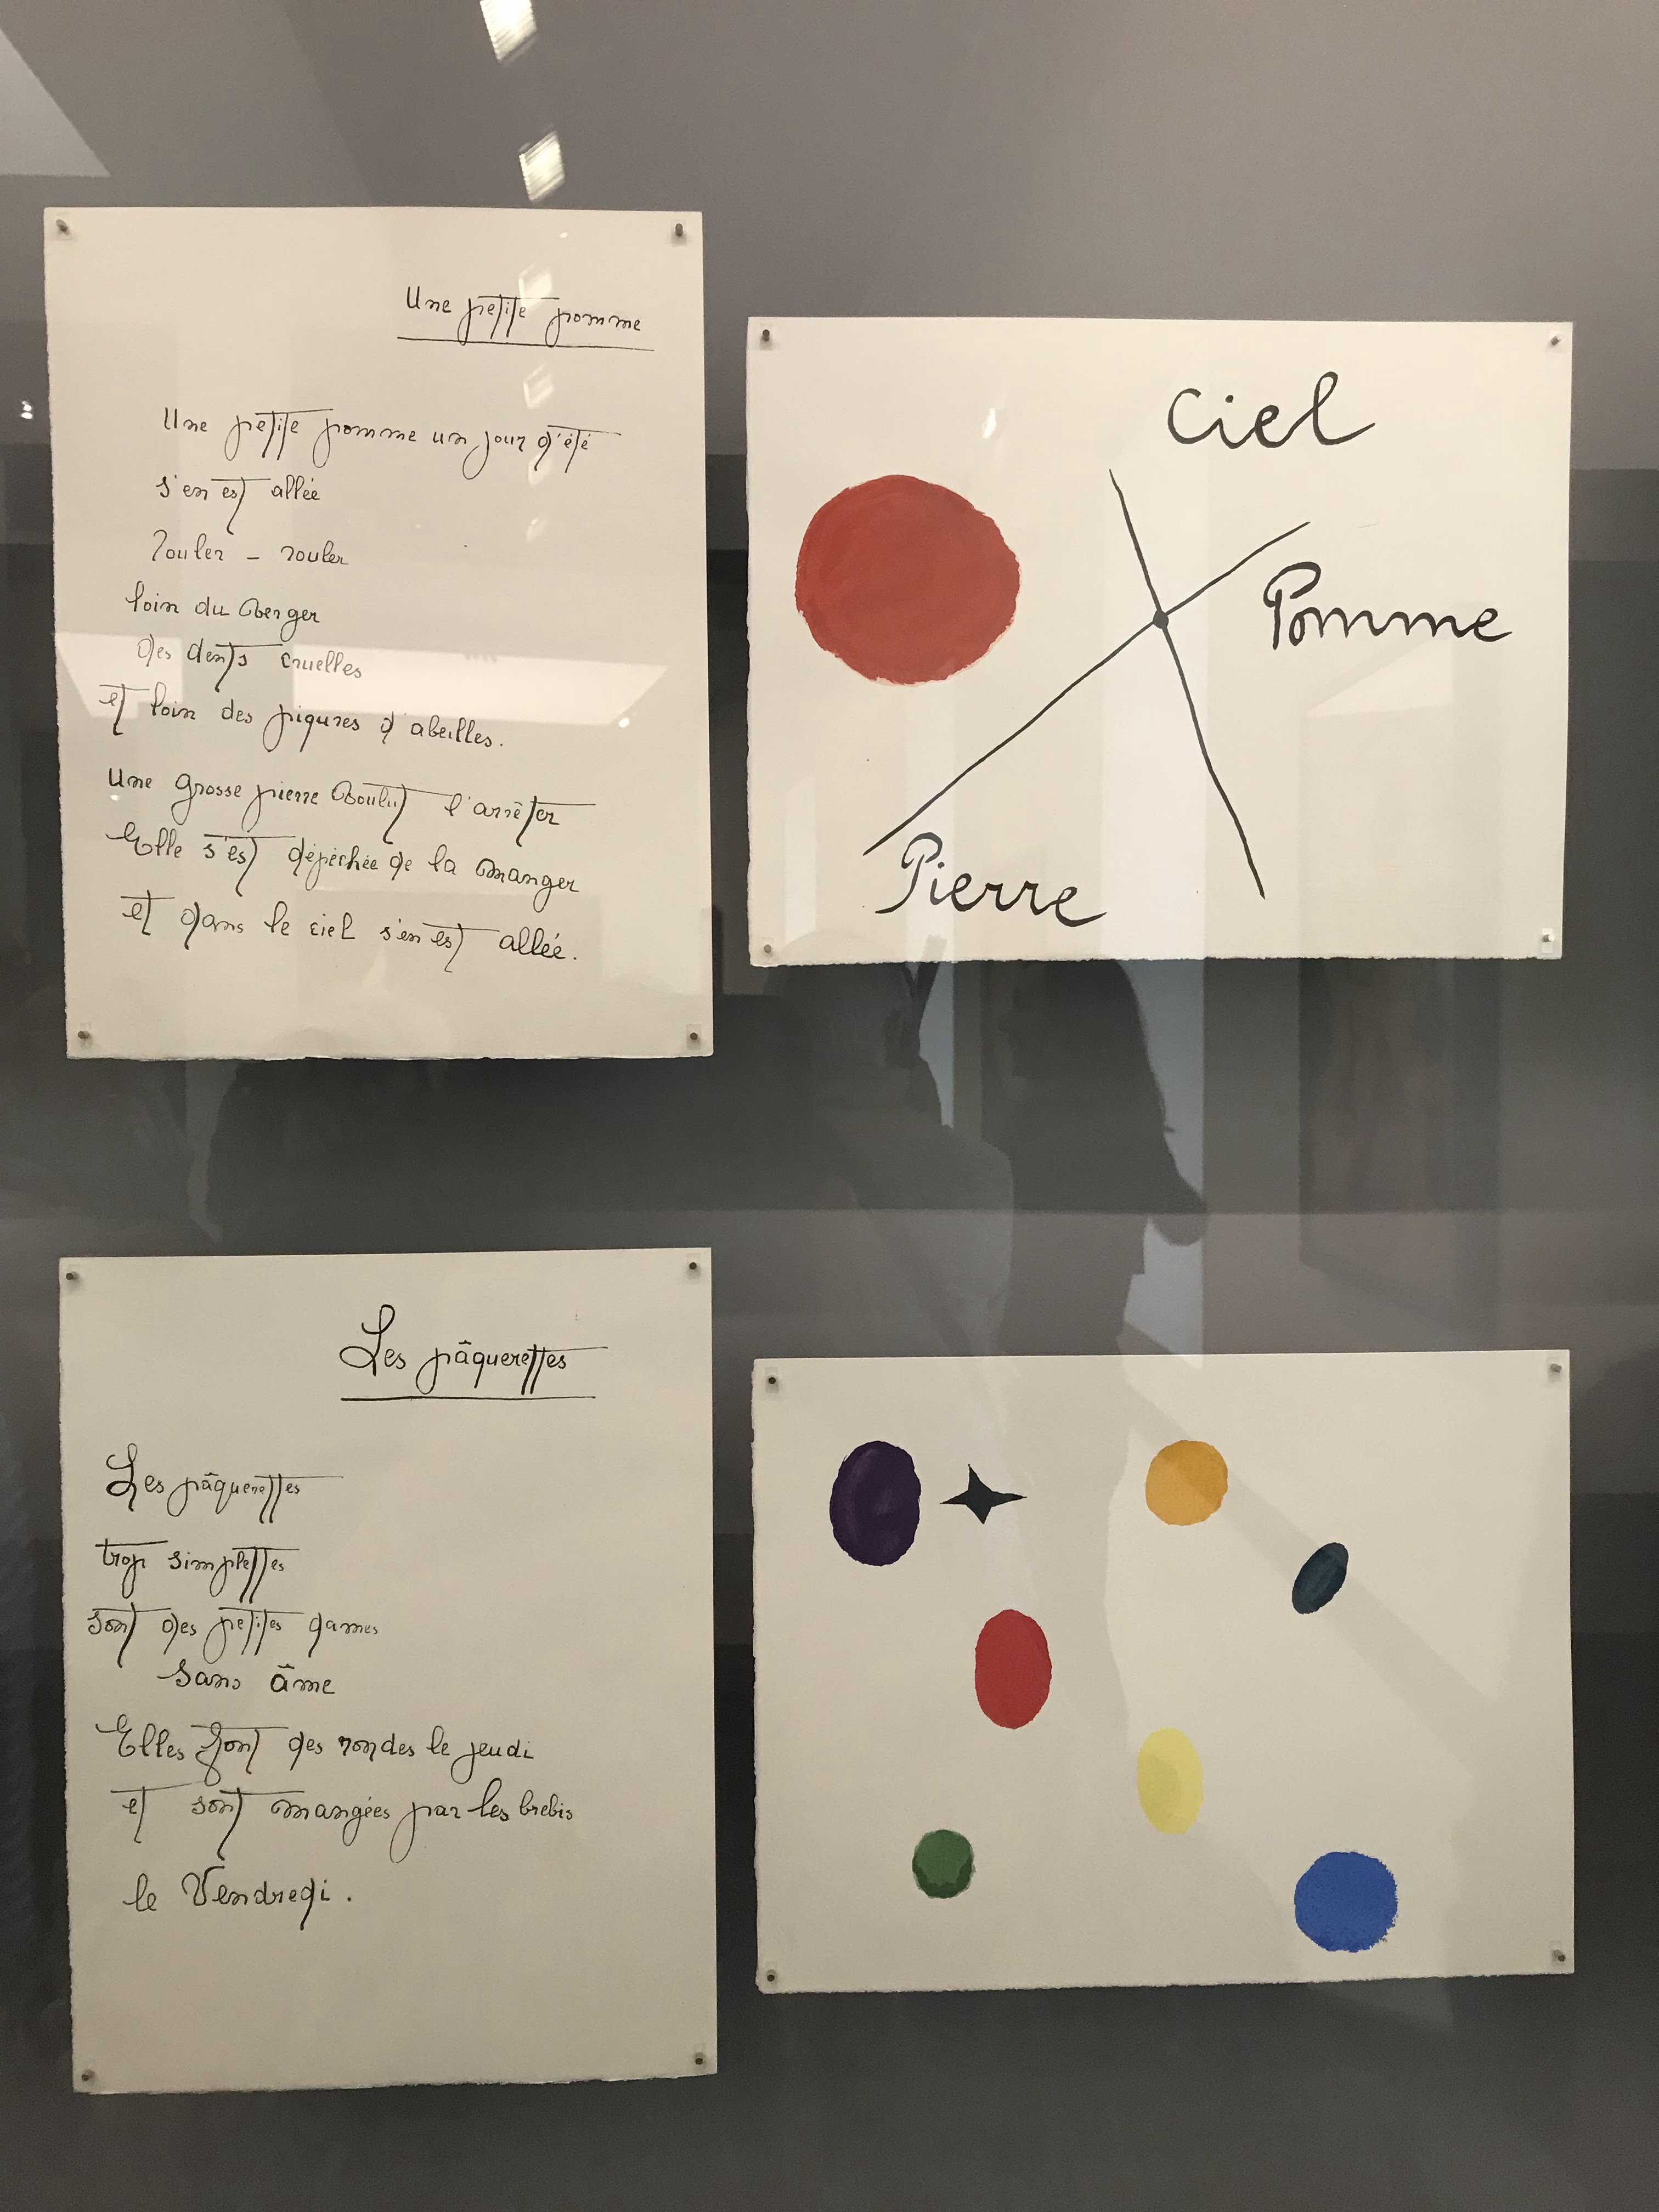 Une petite pomme
Une petite pomme un jour d'été
s'en est allée
rouler - rouler
loin du berger
des dents cruelles
et loin des piqures d'abeilles.
Une grosse pierre voulut l'arrêter
Elle s'est dépêchée de la manger
et dans le ciel s'en est allée.
Ciel
Pomme
Pierre
Les pâquerettes
Les pâquerettes
trop simplettes
sont des petites dames
sans âme
Elles font des rondes le jeudi
et sont mangées par les brebis
le Vendredi.